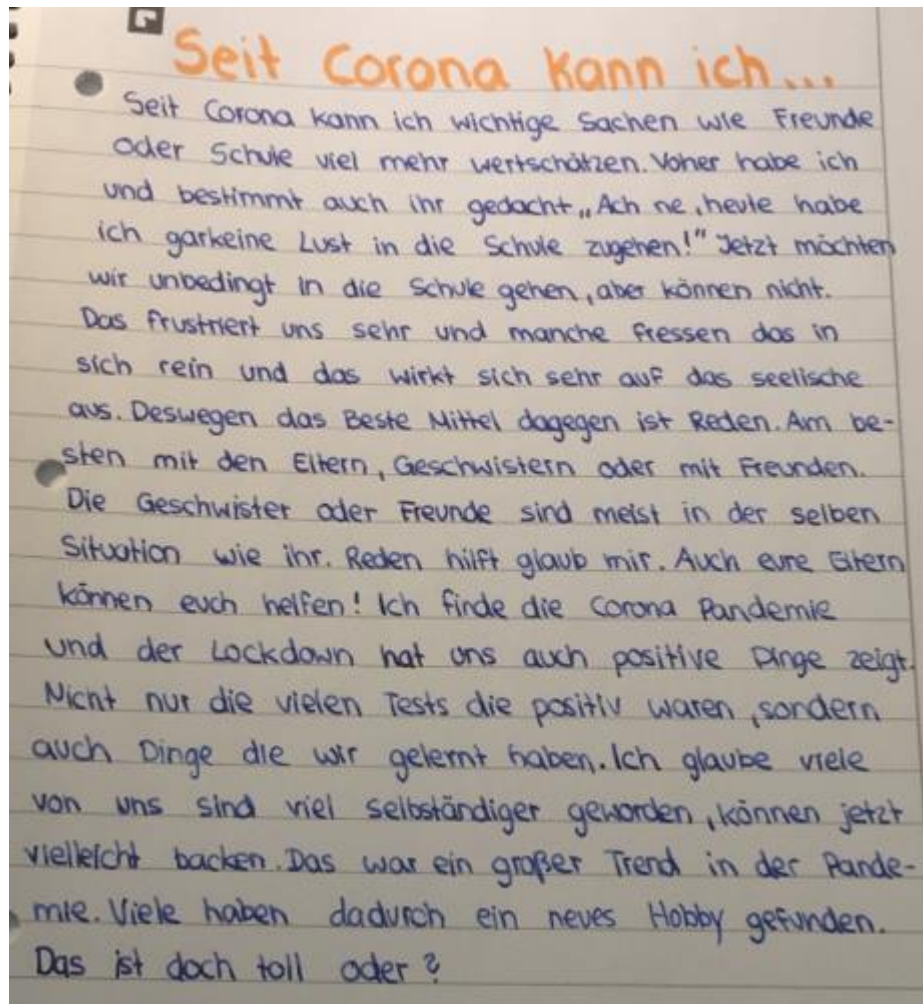 Seit Corona kann ich...
Seit Corona kann ich wichtige Sachen wie Freunde
oder Schule viel mehr wertschätzen. Voher habe ich
und bestimmt auch ihr gedacht „Ach ne, heute habe
ich garkeine Lust in die Schule zugehen!" Jetzt möchten
wir unbedingt in die Schule gehen, aber können nicht.
Das frustriert uns sehr und manche fressen das in
sich rein und das wirkt sich sehr auf das seelische
aus. Deswegen das Beste Mittel dagegen ist Reden. Am be-
sten mit den Eltern, Geschwistern oder mit Freunden.
Die Geschwister oder Freunde sind meist in der selben
Situation wie ihr. Reden hilft glaub mir. Auch eure Eltern
können euch helfen! Ich finde die Corona Pandemie
und der Lockdown hat uns auch positive Dinge zeigt.
Nicht nur die vielen Tests die positiv waren, sondern
auch Dinge die wir gelernt haben. Ich glaube viele
von uns sind viel selbständiger geworden, können jetzt
vielleicht backen. Das war ein großer Trend in der Pande-
mie. Viele haben dadurch ein neues Hobby gefunden.
Das ist doch toll oder?